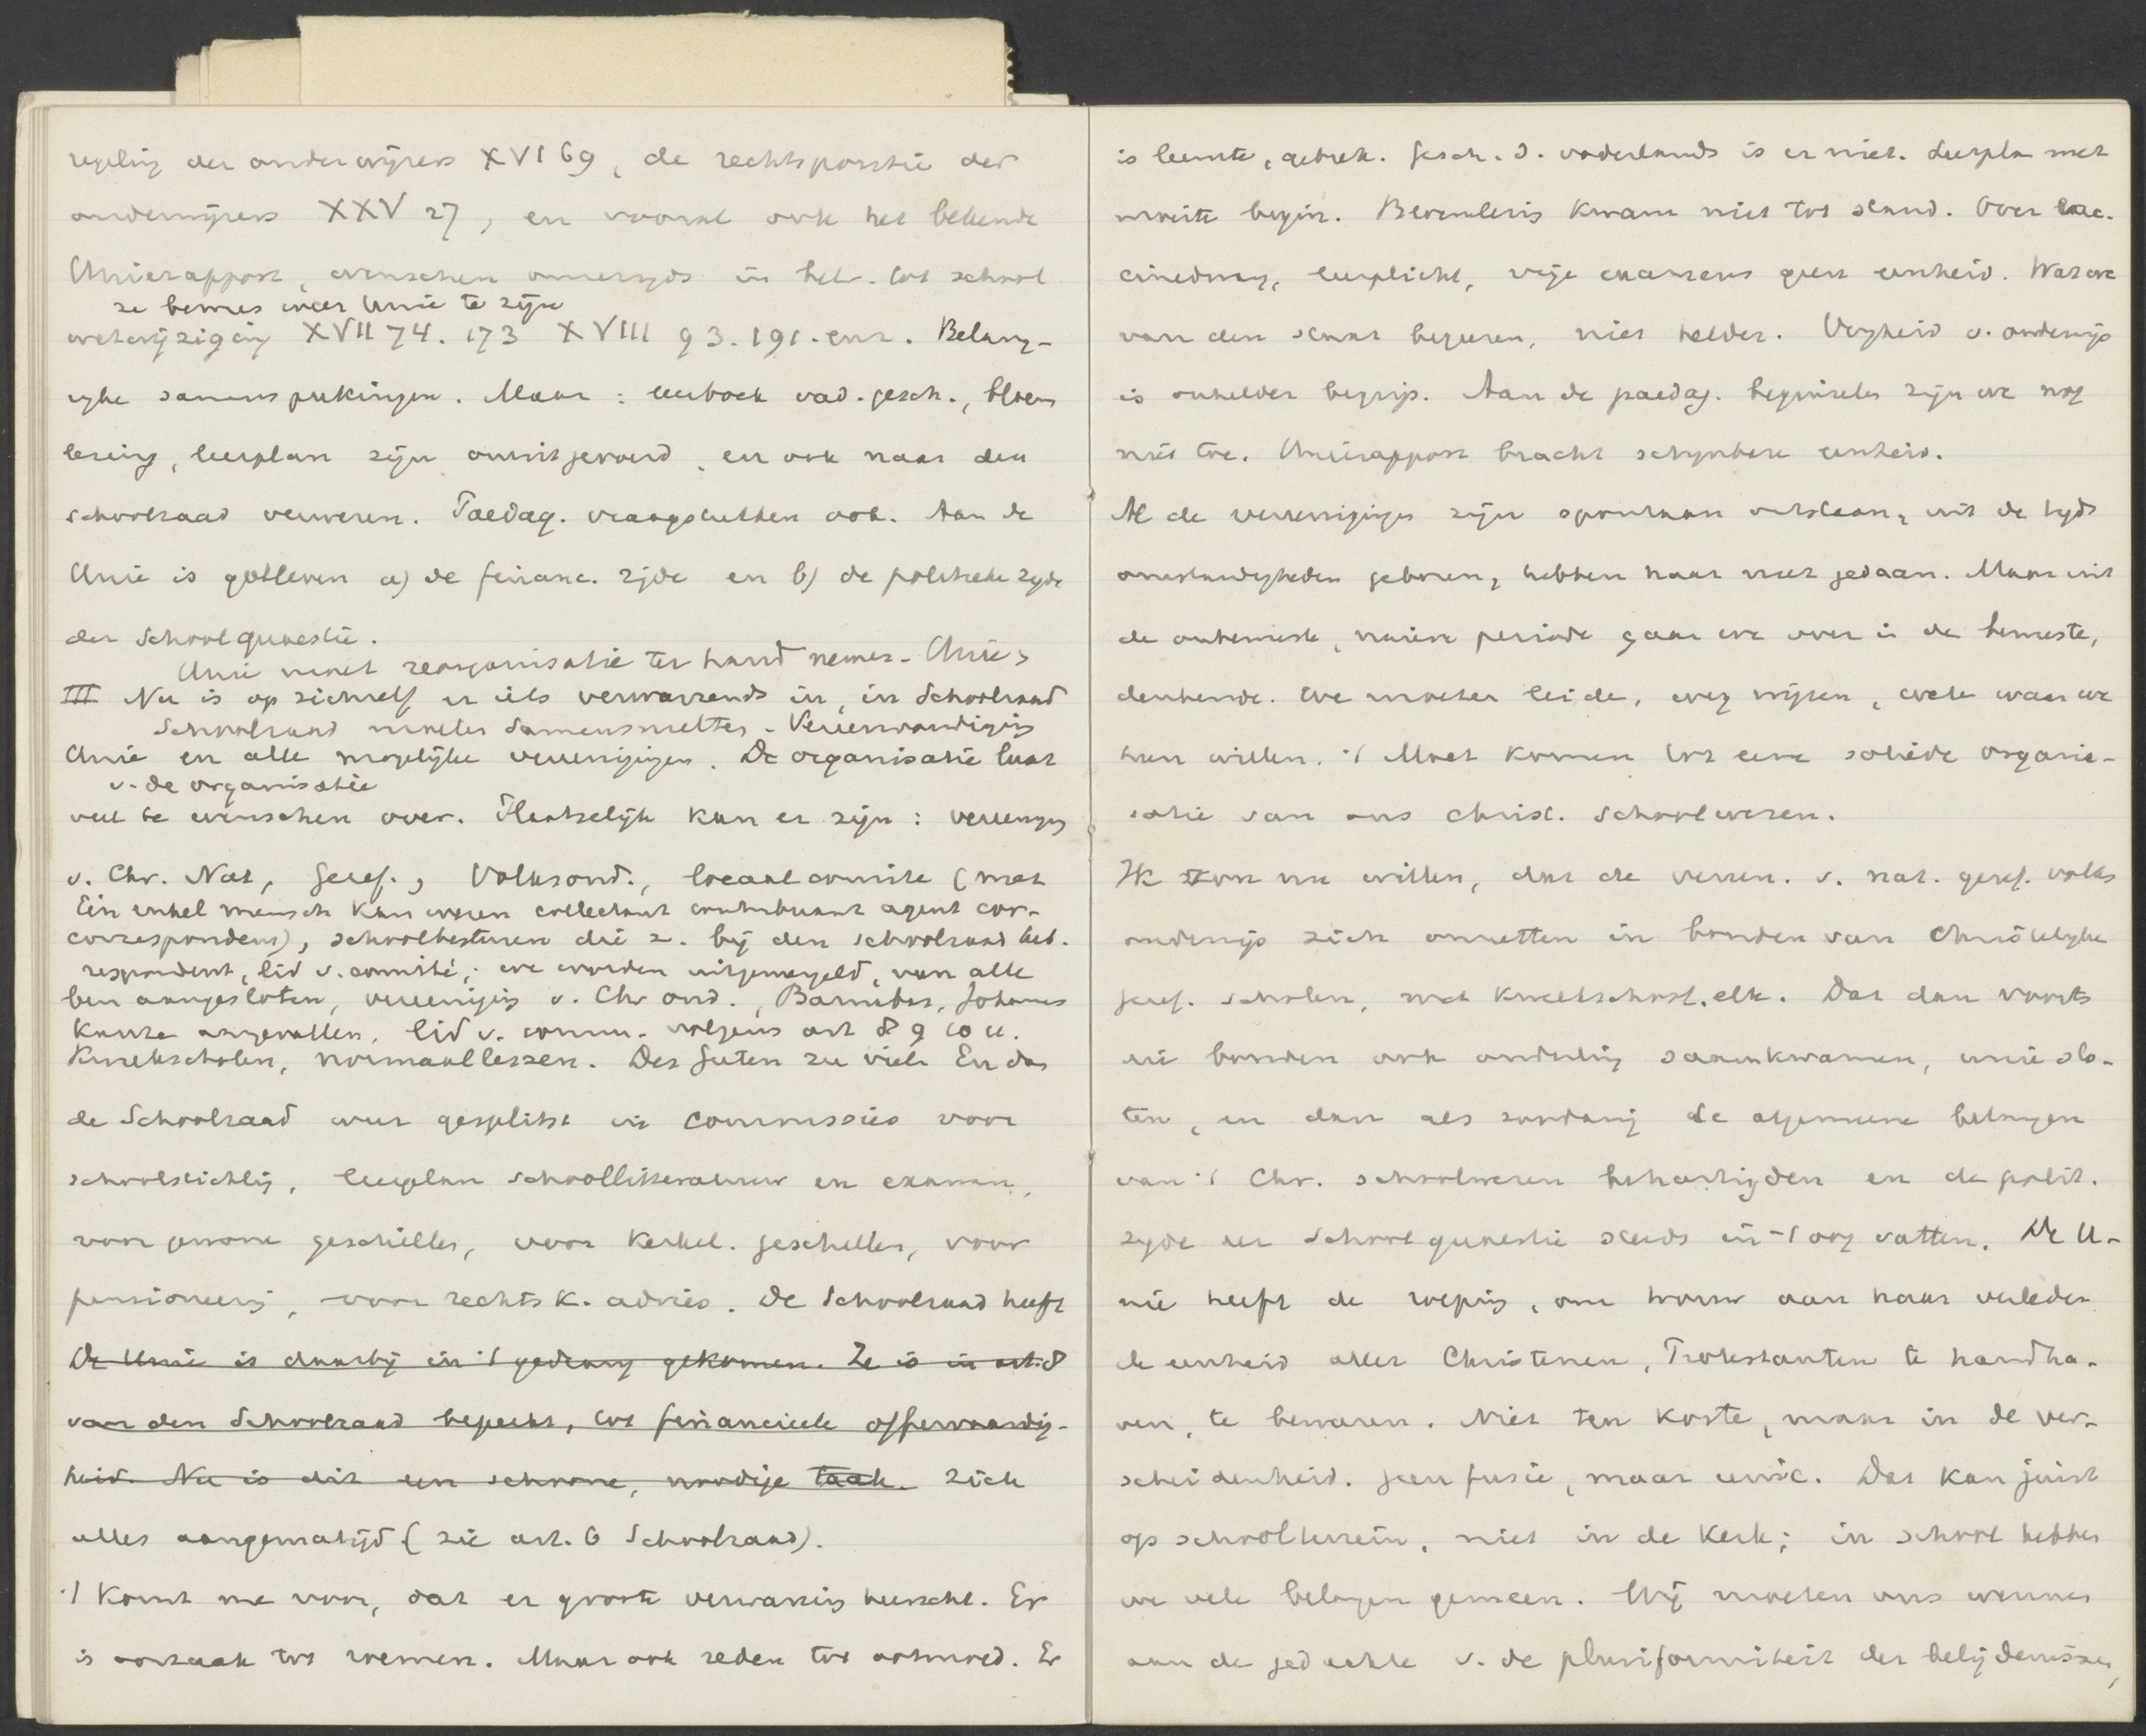 regeling der onderwijzers XVI 69, de rechtspositie der
onderwijzers XXV 27, en vooral ook het bekende
Unierapport, wenschen onzerzijds in betr. tot school
ze bewees weer Unie te zijn
wetwijziging XVII 74. 173 XVIII 93. 191. enz. Belang-
rijke samensprekingen. Maar: leerboek vad. gesch., bloem
lezing, leerplan zijn onuitgevoerd, en ook naar den
schoolraad verwezen. Paedag. vraagstukken ook. Aan de
Unie is gebleven a) de financ. zijde en b) de politieke zyde
der Schoolquaestie.
Unie moet reorganisatie ter hand nemen - Unie >
III Nu is op zichzelf er iets verwarrends in, in Schoolraad
Schoolraad moeten samensmelten - Vereenvoudiging
Unie en alle mogelijke vereenigingen. De organisatie laat
v. de organisatie
veel te wenschen over. Plaatselijk kan er zijn: vereenging
v. Chr. Nat, Geref., Volksond., locaal comité (met
Een enkel mensch kan wezen collectant contribuant agent cor-
correspondent), schoolbesturen die z. bij den schoolraad heb.
respondent, lid v. comité; we worden uitgemergeld, van alle
ben aangesloten, vereeniging v. Chr ond., Barnabas, Johannes
kanten aangevallen, lid v. comm. volgens art 8 9 10 11.
Kweekscholen, normaallessen. Des Guten zu viel. En dan
de Schoolraad weer gesplitst in commissies voor
schoolstichting, leerplan schoollitteratuur en examen,
voor gewone geschillen, voor kerkel. geschillen, voor
pensioneering, voor rechtsk. advies. De Schoolraad heeft
De Unie is daarbij in 't gedrang gekomen. Ze is in art. 8
van den Schoolraad beperkt, tot financieele offervaardig-
heid. Nu is dit een schoone, noodige taak. zich
alles aangematigd (zie art. 6 Schoolraad).
't Komt me voor, dat er groote verwarring heerscht. Er
is oorzaak tot roemen. Maar ook reden tot ootmoed. Er
is leemte, gebrek. Gesch. d. vaderlands is er niet. Leerplan met
moeite begin. Bloemlezing kwam niet tot stand. Over vac-
cinedwang, leerplicht, vrije examens geen eenheid. Wat we
van den staat begeeren, niet helder. Vrijheid v. onderwijs
is onhelder begrip. Aan de paedag. beginselen zijn we nog
niet toe. Unierapport bracht schijnbare eenheid.
Al de vereenigingen zijn spontaan ontstaan, uit de tijds
omstandigheden geboren, hebben haar nut gedaan. Maar uit
de onbewuste, naieve periode gaan we over in de bewuste,
denkende. We moeten leiden, weg wijzen, weten waar we
heen willen. 't Moet komen tot eene solide organi-
satie van ons christ. schoolwezen.
Ik zou nu willen, dat de vereen. v. nat. geref. volks
onderwijs zich omzetten in bonden van Christelyke
geref. scholen, met kweekschool. elk. Dat dan voorts
die bonden ook onderling saamkwamen, unie slo-
ten, en dan als zoodanig de algemeene belangen
van 't Chr. schoolwezen behartigden en de polit.
zyde der schoolquaestie steeds in 't oog vatten. De U-
nie heeft de roeping, om trouw aan haar verleden
de eenheid aller Christenen, Protestanten te handha-
ven, te bewaren. Niet ten koste, maar in de ver-
scheidenheid. Geen fusie, maar unie. Dat kan juist
op schoolterrein, niet in de kerk; in school hebben
we vele belangen gemeen. Wij moeten ons wennen
aan de gedachte v. de pluriformiteit der belijdenissen,